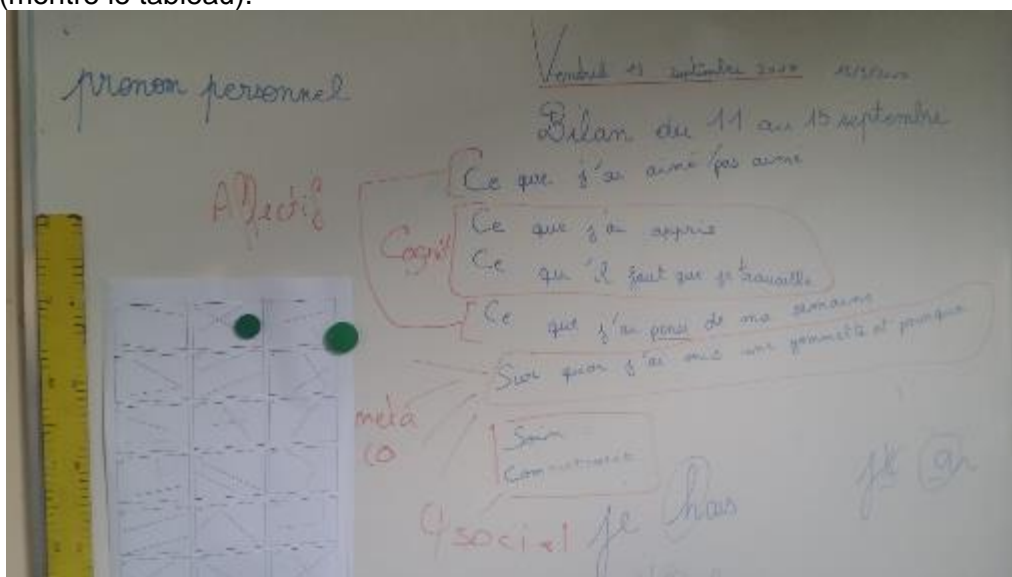 (montre le tableau).
pronom personnel
Vendredi 15 septembre
Bilan du 11 au 15 septembre
Affectif
Ce que j'ai aimé/pas aimé
Cognitif
Ce que j'ai appris
Ce qu'il faut que je travaille
Ce que j'ai pensé de ma semaine
Sur quoi j'ai mis une gommette et pourquoi
méta
co
Soin
Comportement
social
je has
je